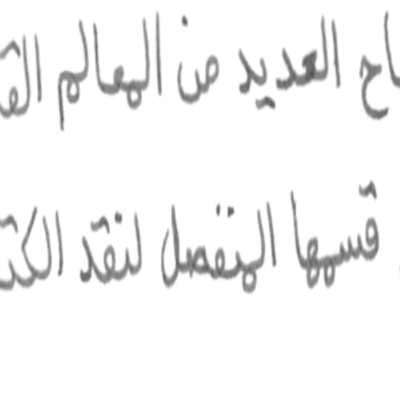 اح العديد من المعالم الق
قسمها المنفصل لنقد الكت